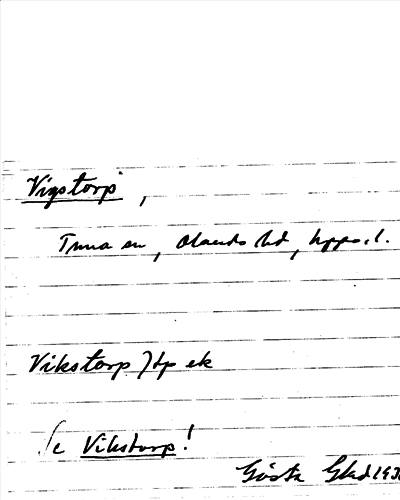 Vigstorp,
Tuna sn, Olands hd, Upps. l.
Vikstorp Jdp ek
Se Vikstorp!
Gösta Glad 193